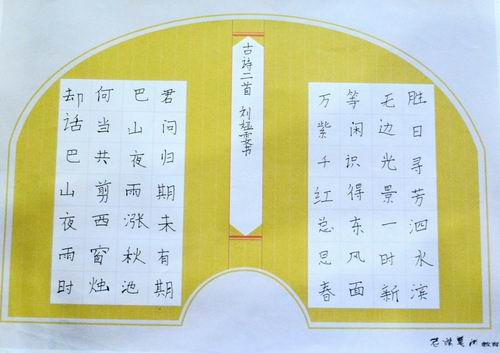 胜日寻芳泗水滨
无边光景一时新
等闲识得东风面
万紫千红总是春
古诗二首 刘
君问归期未有期
巴山夜雨涨秋池
何当共剪西窗烛
却话巴山夜雨时
教育